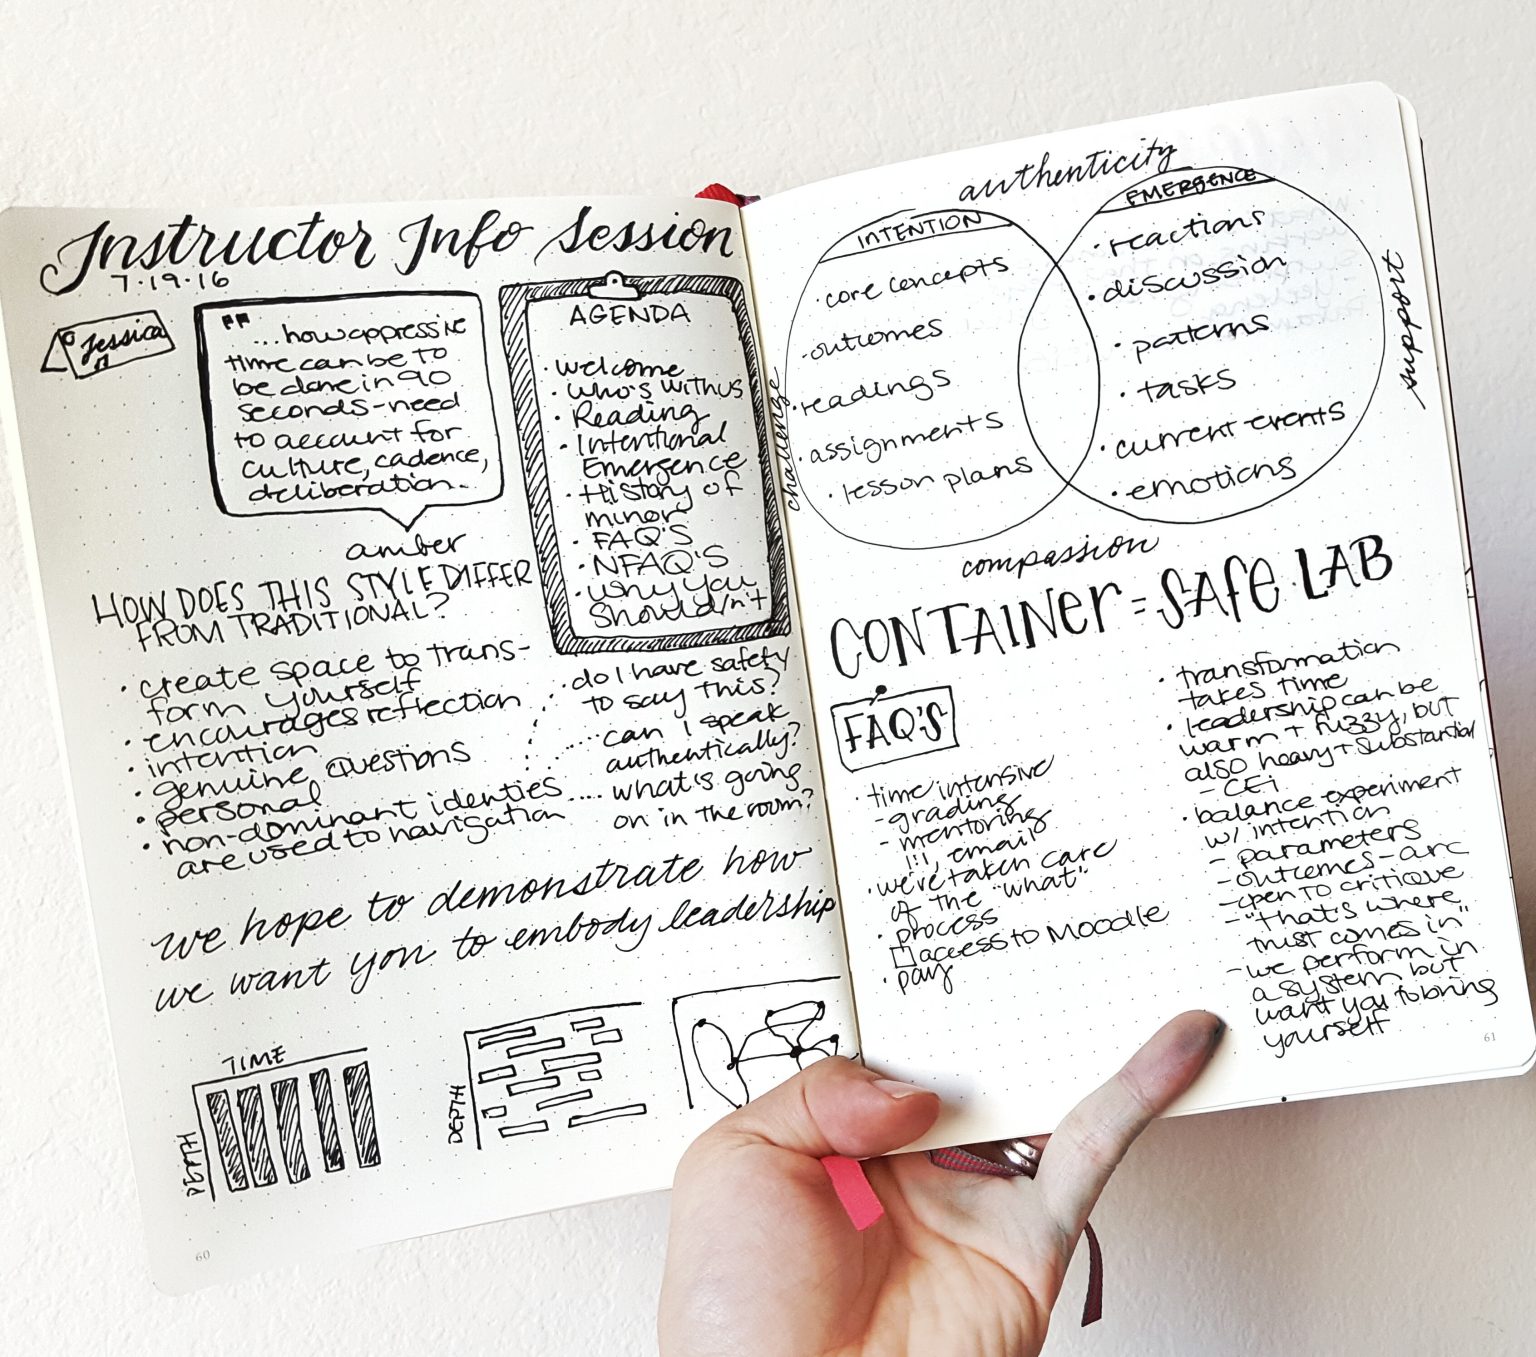 Instructor Info Session
7.19.16
Jessica
"...how oppressive
time can be to
be done in 90
seconds-need
to account for
culture, cadence,
deliberation..
amber
AGENDA
· welcome
· who's with us
· Reading
· Intentional
Emergence
· History of
minor
· FAQ'S
· NFAQ'S
· why you
should/n't
HOW DOES THIS STYLE DIFFER
FROM TRADITIONAL?
· create space to trans-
form yourself
· encourages reflection
· intention
· genuine questions
· personal
· non-dominant identies
are used to navigation
· do I have safety
to say this?
.... can I speak
authentically?
.... what's going
on in the room?
we hope to demonstrate how
we want you to embody leadership
TIME
DEPTH
DEPTH
authenticity
challenge
support
compassion
INTENTION
· core concepts
· outcomes
· readings
· assignments
· lesson plans
EMERGENCE
· reactions
· discussion
· patterns
· tasks
· current events
· emotions
CONTAINER = SAFE LAB
FAQ'S
· time intensive
- grading
- mentoring
1:1, email
· we've taken care
of the "what"
· process
access to Moodle
· pay
· transformation
takes time
· leadership can be
warm + fuzzy, but
also heavy + substantial
- CEI
· balance experiment
w/ intention
- parameters
- outcomes-arc
- open to critique
- "that's where
trust comes in"
- we perform in
a system but
want you to bring
yourself
60
61